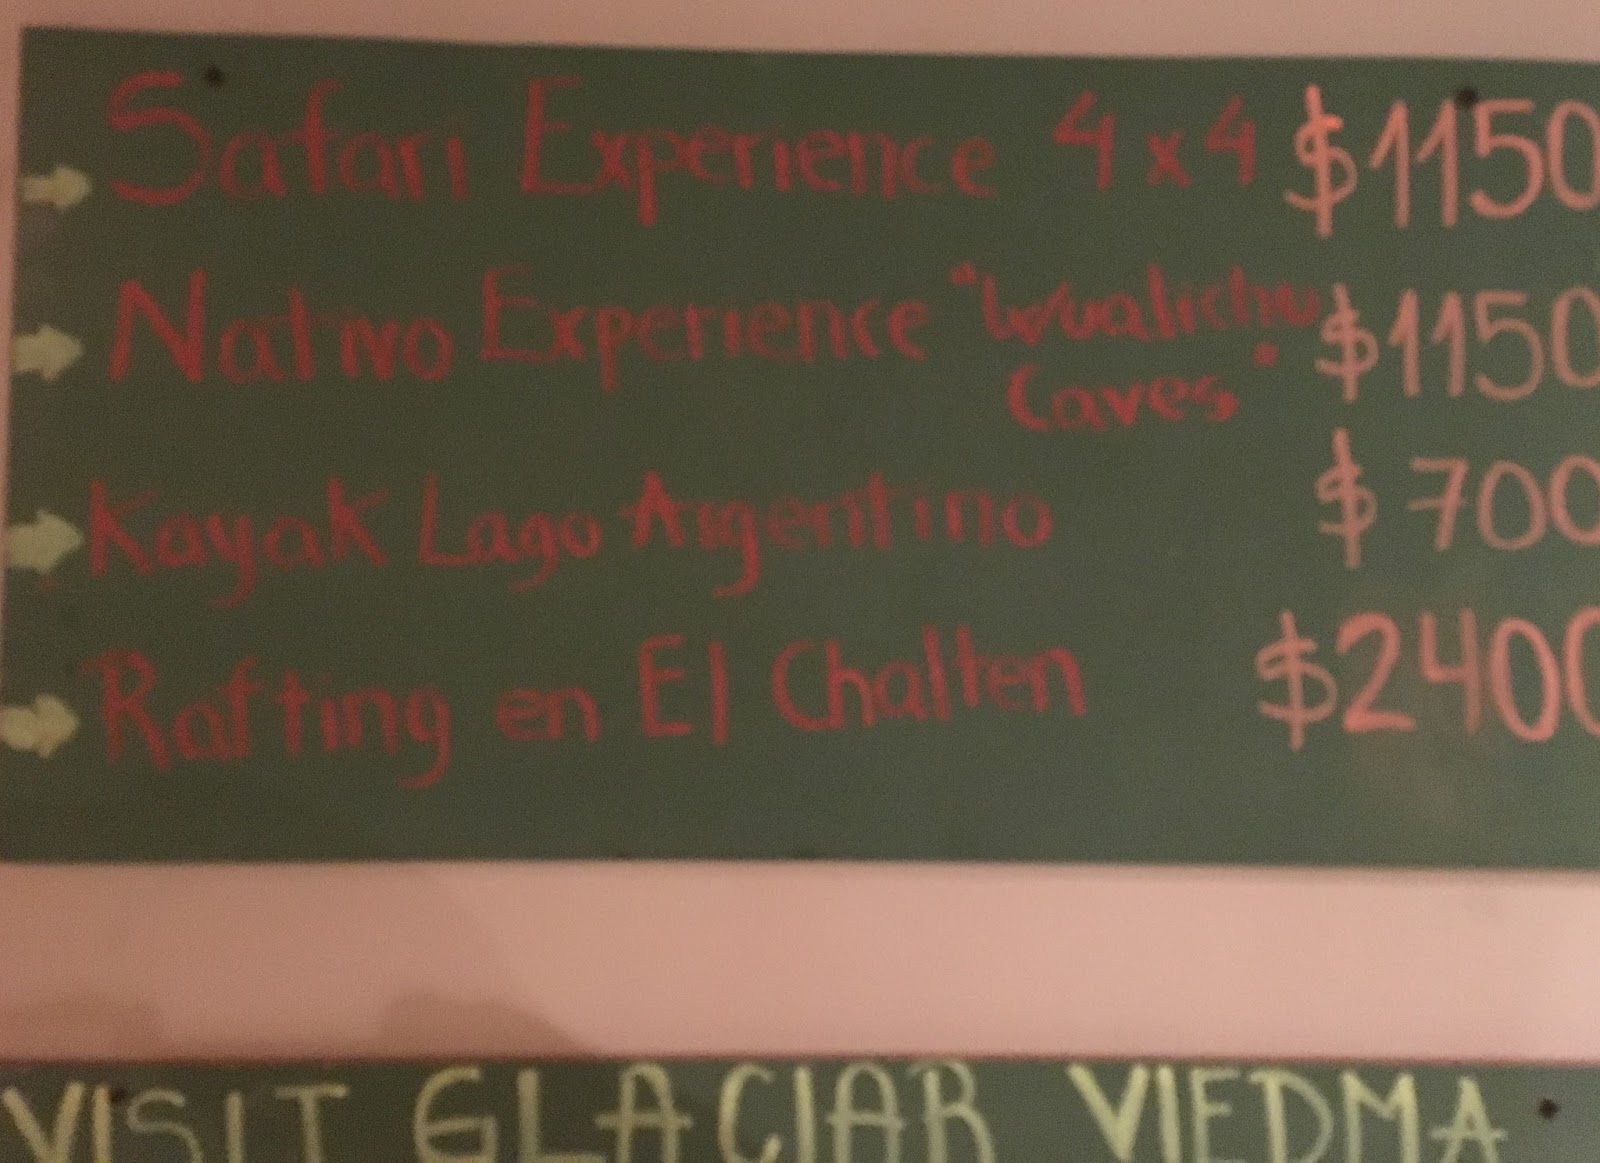 Safari Experience 4x4 $1150
Nativo Experience "Walichu $1150
Caves"
Kayak Lago Argentino $700
Rafting en El Chalten $2400
VISIT GLACIAR VIEDMA